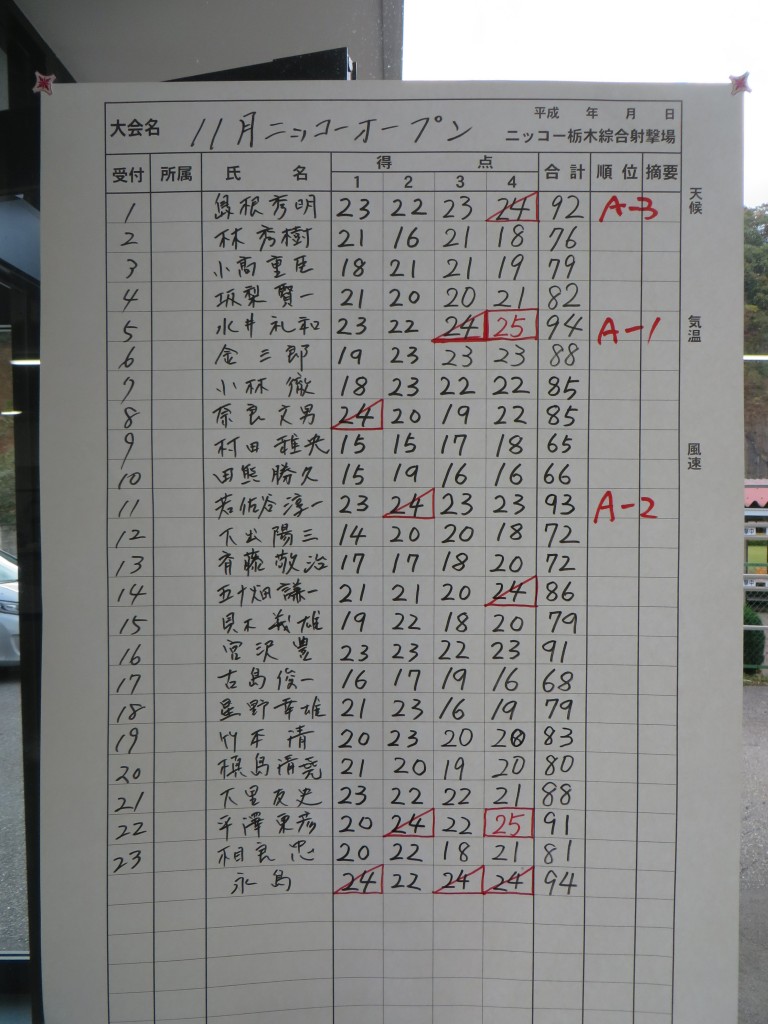 大会名 11月ニッコーオープン 平成 年 月 日
ニッコー栃木綜合射撃場
受付 所属 氏 名 得 点 合計 順位 摘要
1 2 3 4
1 島根秀明 23 22 23 24 92 A-3
2 林秀樹 21 16 21 18 76
3 小高重臣 18 21 21 19 79
4 坂梨賢一 21 20 20 21 82
5 水井礼和 23 22 24 25 94 A-1
6 金三郎 19 23 23 23 88
7 小林徹 18 23 22 22 85
8 奈良文男 24 20 19 22 85
9 村田雅央 15 15 17 18 65
10 田熊勝久 15 19 16 16 66
11 若佐谷淳一 23 24 23 23 93 A-2
12 下出陽三 14 20 20 18 72
13 斉藤敬治 17 17 18 20 72
14 五十畑謙一 21 21 20 24 86
15 貝木義雄 19 22 18 20 79
16 宮沢豊 23 23 22 23 91
17 古島俊一 16 17 19 16 68
18 星野幸雄 21 23 16 19 79
19 竹本清 20 23 20 20 83
20 槙島清尭 21 20 19 20 80
21 下里友史 23 22 22 21 88
22 平澤東彦 20 24 22 25 91
23 相良忠 20 22 18 21 81
永島 24 22 24 24 94
天候
気温
風速